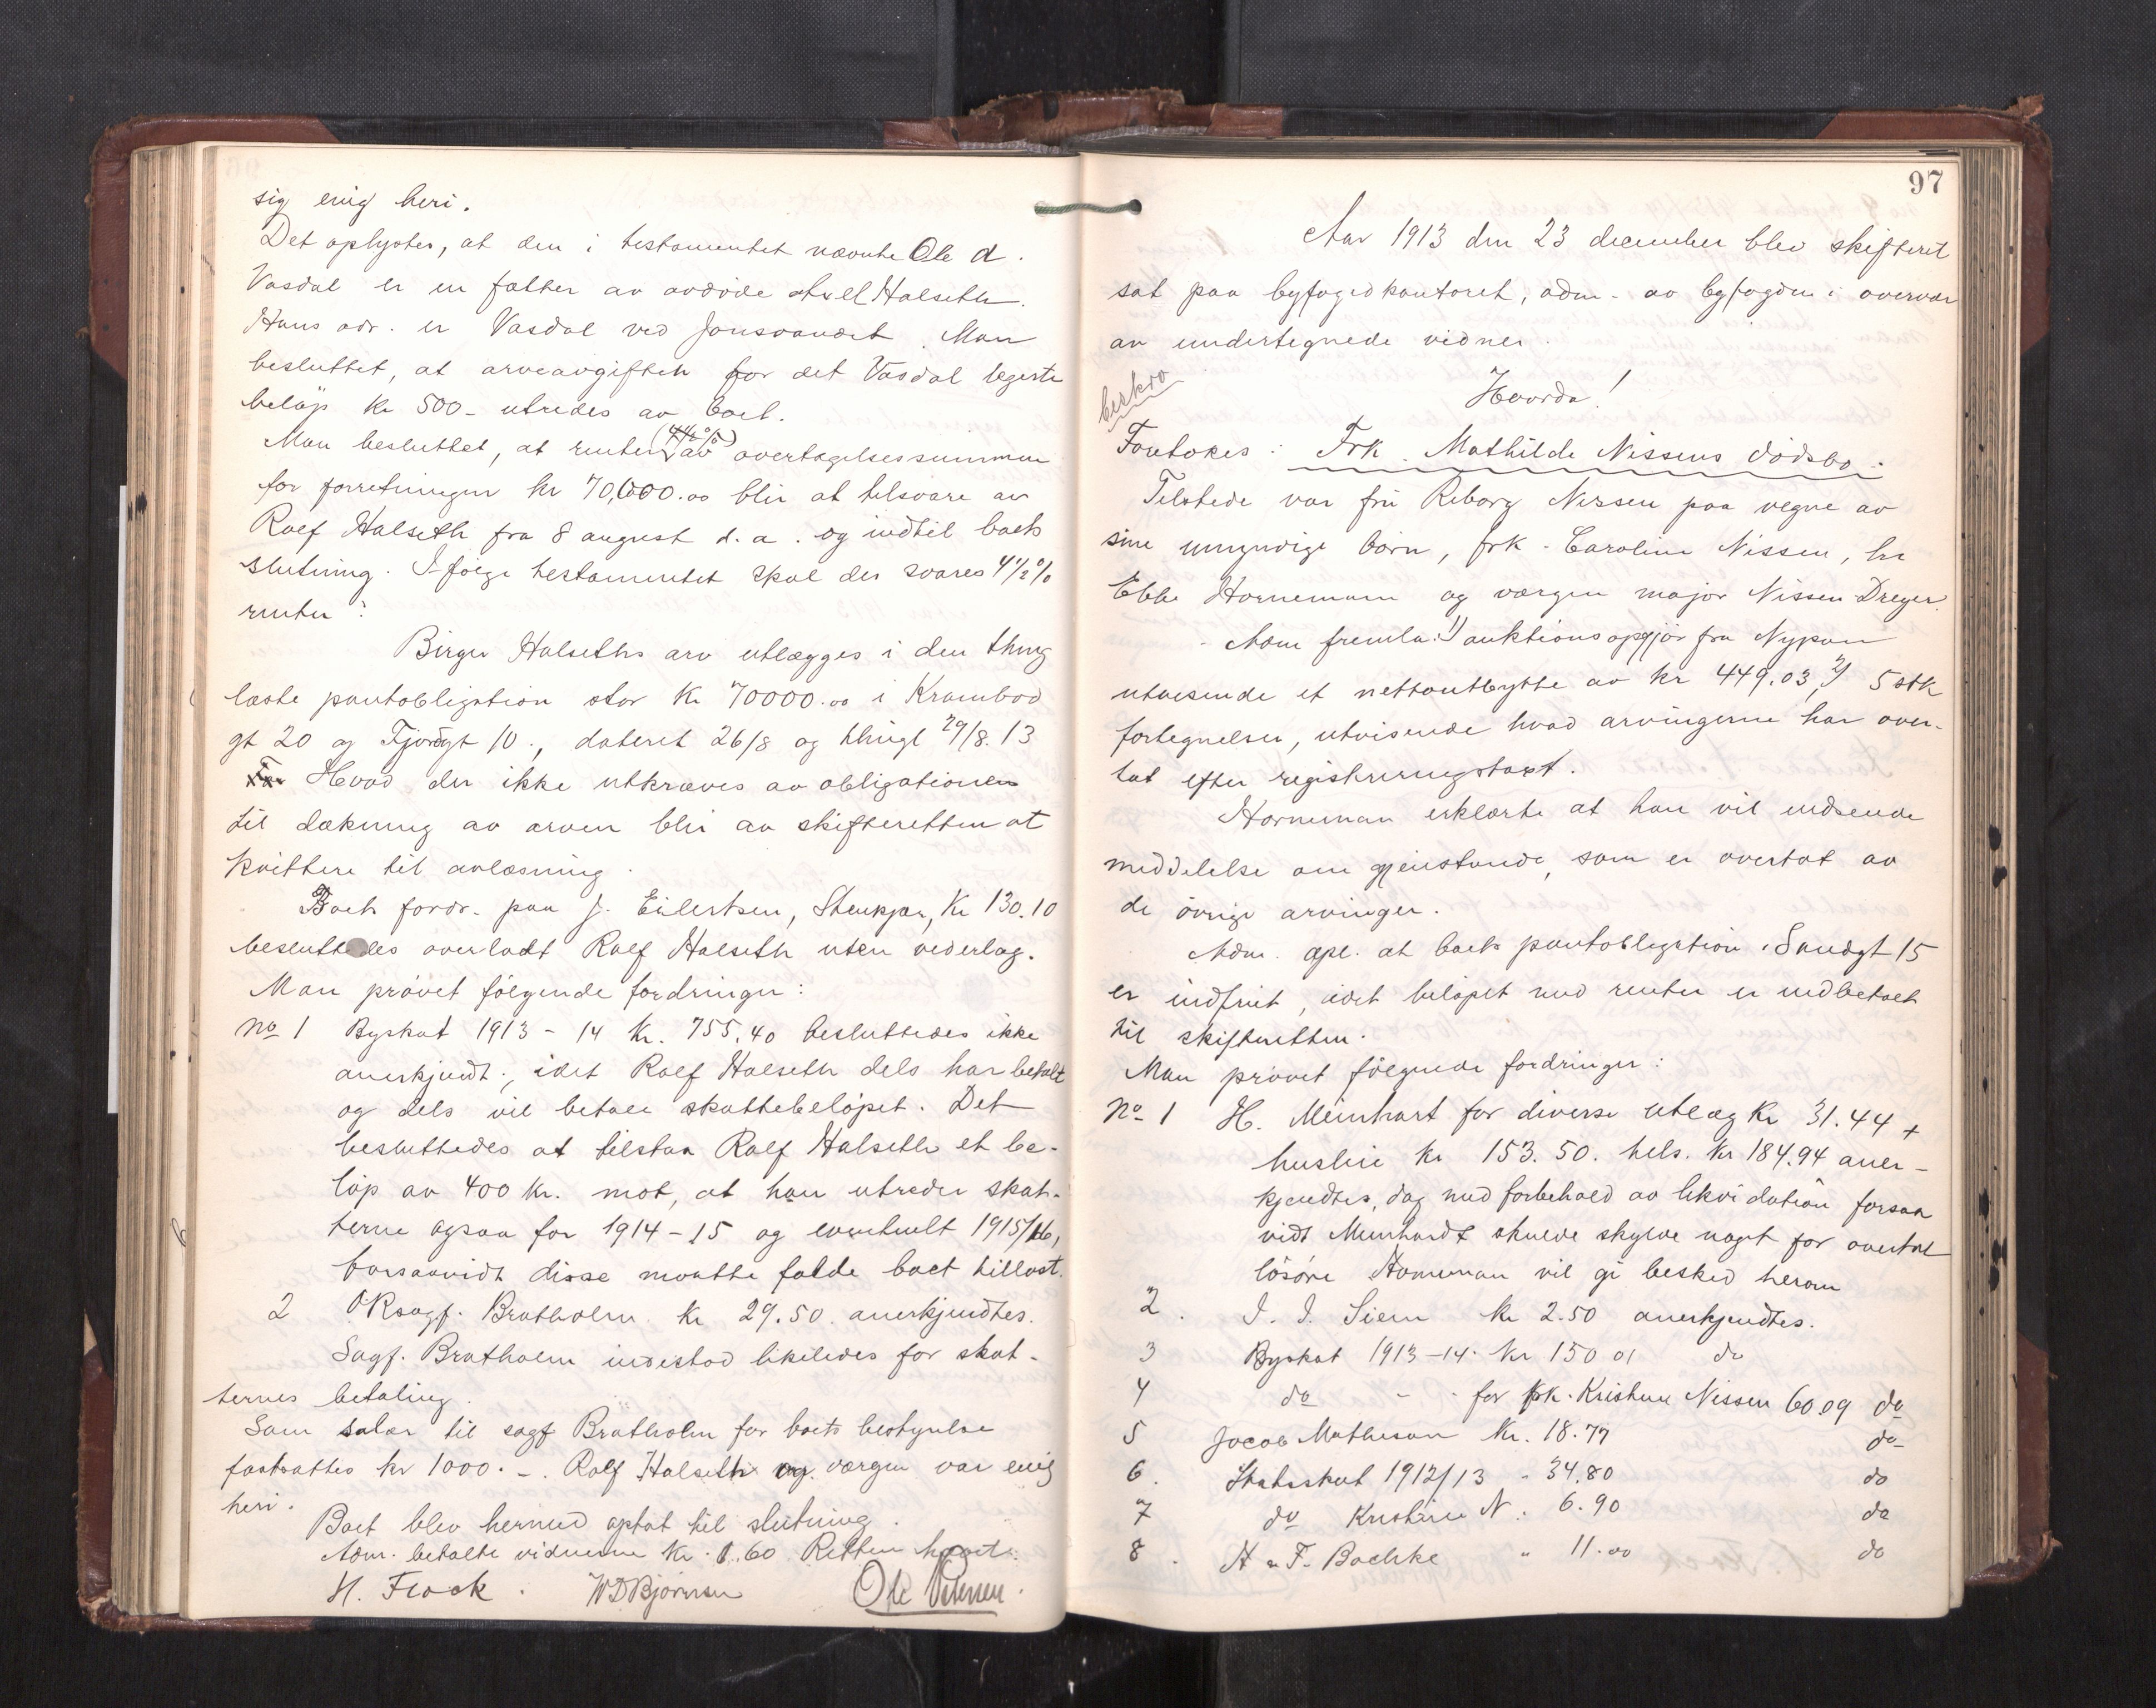 sig enig heri.
Det oplystes, at den i testamentet nævnte Ole A.
Vasdal er en fætter av avdøde Axel Halseth.
Hans adr. er Vasdal ved Jonsvandet. Man
besluttet, at arveavgiften for det Vasdal legerte
beløp kr 500- utredes av boet.
Man besluttet, at renter (4½%) av overtagelsessummen
for forretningen kr 70,000.00 blir at tilsvare av
Rolf Halseth fra 8 august d.a. og indtil boets
slutning. Ifølge testamentet skal der svares 4½%
renter.
Birger Halseths arv utlægges i den thing
læste pantobligation stor Kr 70000.00 i Krambod
gt 20 og Fjordgt 10., dateret 26/8 og thingl 29/8.13
Hvad der ikke utkræves av obligationen
til dækning av arven blir av skifteretten at
kvittere til avlæsning.
Boets fordr. paa J. Eilertsen, Stenkjær, Kr 130.10
besluttedes overladt Rolf Halseth uten vederlag.
Man prøvet følgende fordringer:
No 1 Byskat 1913-14 Kr. 755.40 besluttedes ikke
anerkjendt, idet Rolf Halseth dels har betalt
og dels vil betale skattebeløpet. Det
besluttedes at tilstaa Rolf Halseth et be-
løp av 400 Kr. mot, at han utreder skat-
terne ogsaa for 1914-15 og eventuelt 1915/16,
forsaavidt disse maatte falde boet tillast.
2 ORsagf. Bratholm kr 29.50. anerkjendtes.
Sagf. Bratholm indestod likeledes for skat-
ternes betaling.
Som salær til sagf Bratholm for boets bestyrelse
fastsattes kr 1000.-. Rolf Halseth og vergen var enig
heri.
Boet blev hermed optat til slutning.
Adm. betalte vidnerne Kr. 1.60 Retten hævet.
H. Flock. WDBjørnsen Ole Petersen.
97
Aar 1913 den 23 december blev skifteret
sat paa byfogedkontoret, adm. av byfogden i overvær
av undertegnede vidner.
Hvorda!
Foretokes: Frk. Mathilde Nissens dødsbo.
Tilstede var fru Reborg Nissen paa vegne av
sine umyndige børn, frk. Caroline Nissen, hr
Ebbe Hornemann og vergen major Nissen-Dreyer.
Adm fremla: 1) auktionsopgjør fra Nypan
utvisende et nettoutbytte av kr 449.03, 2) 5 stk
fortegnelser, utvisende hvad arvingerne har over-
tat efter registreringstaxt.
Horneman erklærte at han vil indsende
meddelelse om gjenstande, som er overtat av
de øvrige arvinger.
Adm. opl. at boets pantobligation i Sandgt 15
er indfriet, idet beløpet med renter er indbetalt
til skifteretten.
Man prøvet følgende fordringer:
No 1 H. Meinhart for diverse utlæg kr 31.44 +
husleie kr 153.50. tils. kr 184.94 aner-
kjendtes, dog med forbehold av likvidation forsaa
vidt Meinhardt skulde skylde noget for overtat
løsøre Horneman vil gi besked herom
2. I. I. Siem kr 2.50 anerkjendtes.
3 Byskat 1913-14. Kr 150 01 do
4 do - - for frk. Kristine Nissen 60.09 do
5 Jacob Matheson Kr. 18.77 do
6. Statsskat 1912/13 - 34.80 do
7 do Kristine N. 6.90 do
8. H & F. Bachke " 11.00 do